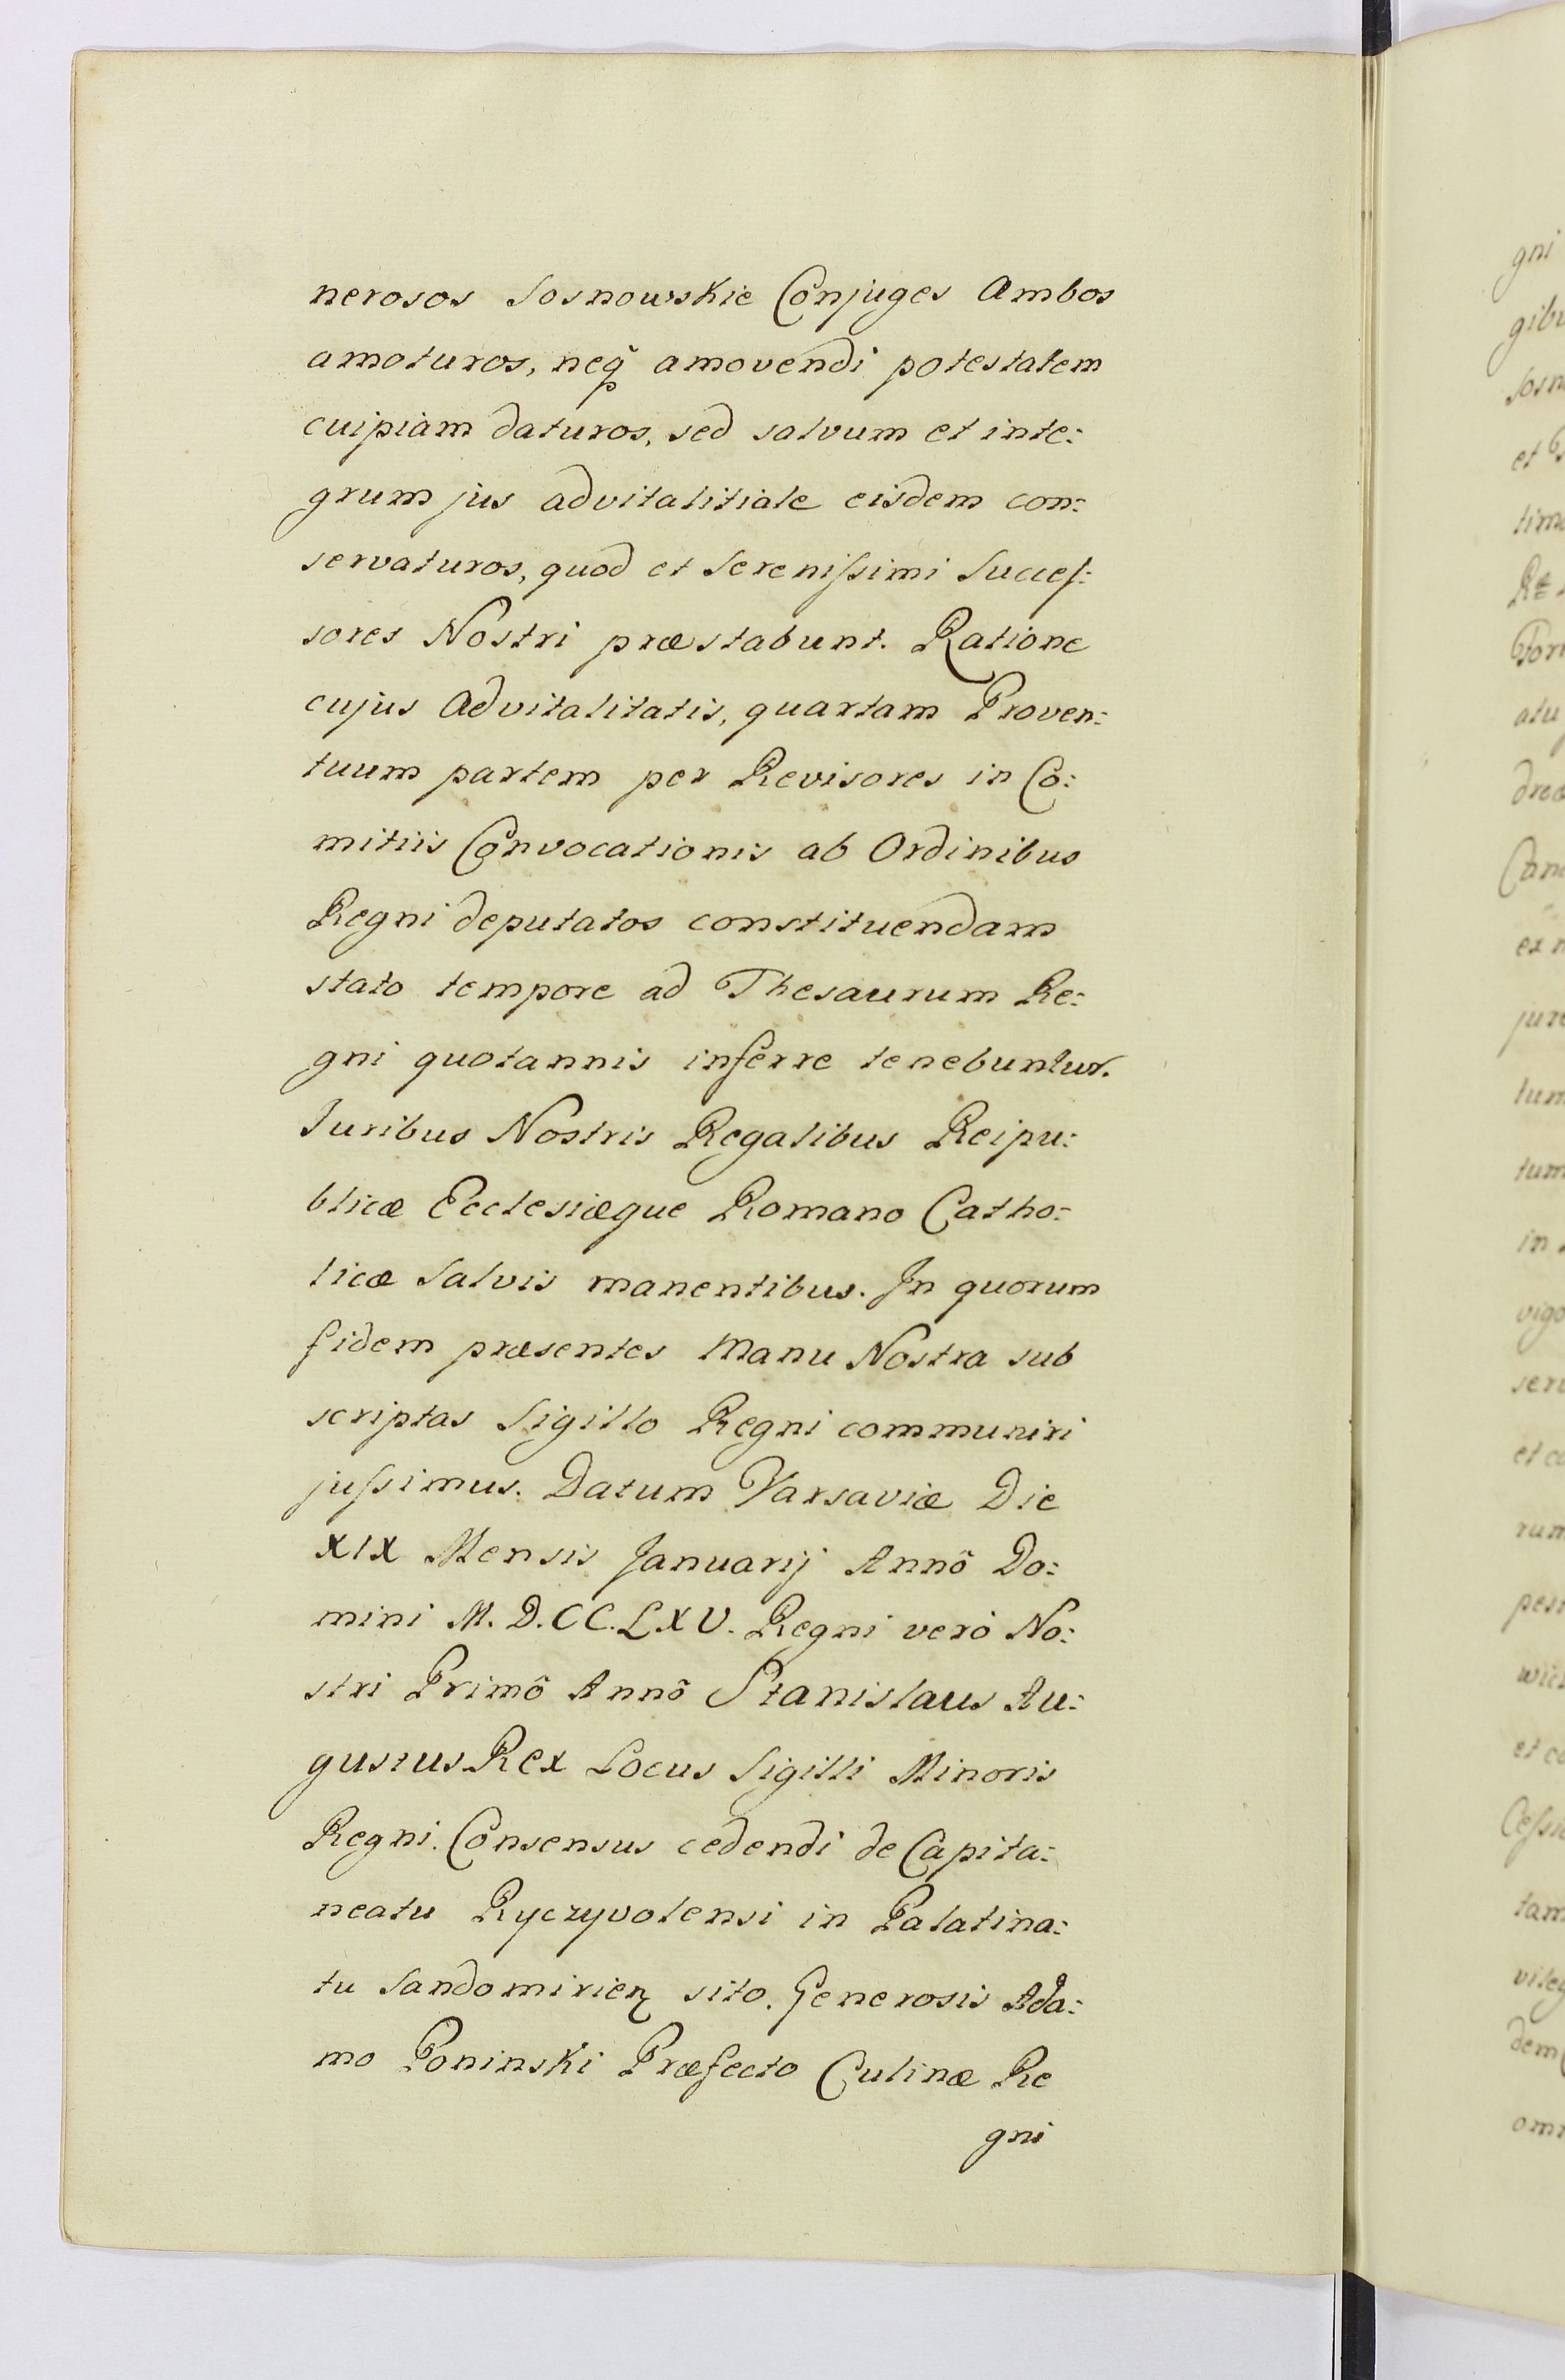 nerosos Sosnowskie Conjuges Ambos
amoturos, neq̃ amovendi potestatem
cuipiam daturos, sed salvum et inte:
grum jus advitalitiale eisdem con:
servaturos, quod et Serenißimi Succeſ:
sores Nostri præstabunt. Ratione
cujus Advitalitatis, quartam Proven:
tuum partem per Revisores in Co:
mitiis Convocationis ab Ordinibus
Regni deputatos constituendam
stato tempore ad Thesaurum Re:
gni quotannis inferre tenebuntur.
Juribus Nostris Regalibus Reipu:
blicæ Ecclesiæque Romano Catho:
licæ Salvis manentibus. In quorum
fidem præsentes Manu Nostra sub
scriptas Sigillo Regni communiri
jußimus. Datum Varsaviæ Die
XIX Mensis Januarij Annô Do:
mini M.D.CC.LXV. Regni verò No:
stri Primô Annô Stanislaus Au:
gustus Rex Locus Sigilli Minoris
Regni. Consensus cedendi de Capita:
neatu Ryczyvolensi in Palatina:
tu Sandomirien̄ sito. Generosis Ada:
mo Poninski Præfecto Culinæ Re
gni
gni
et
in